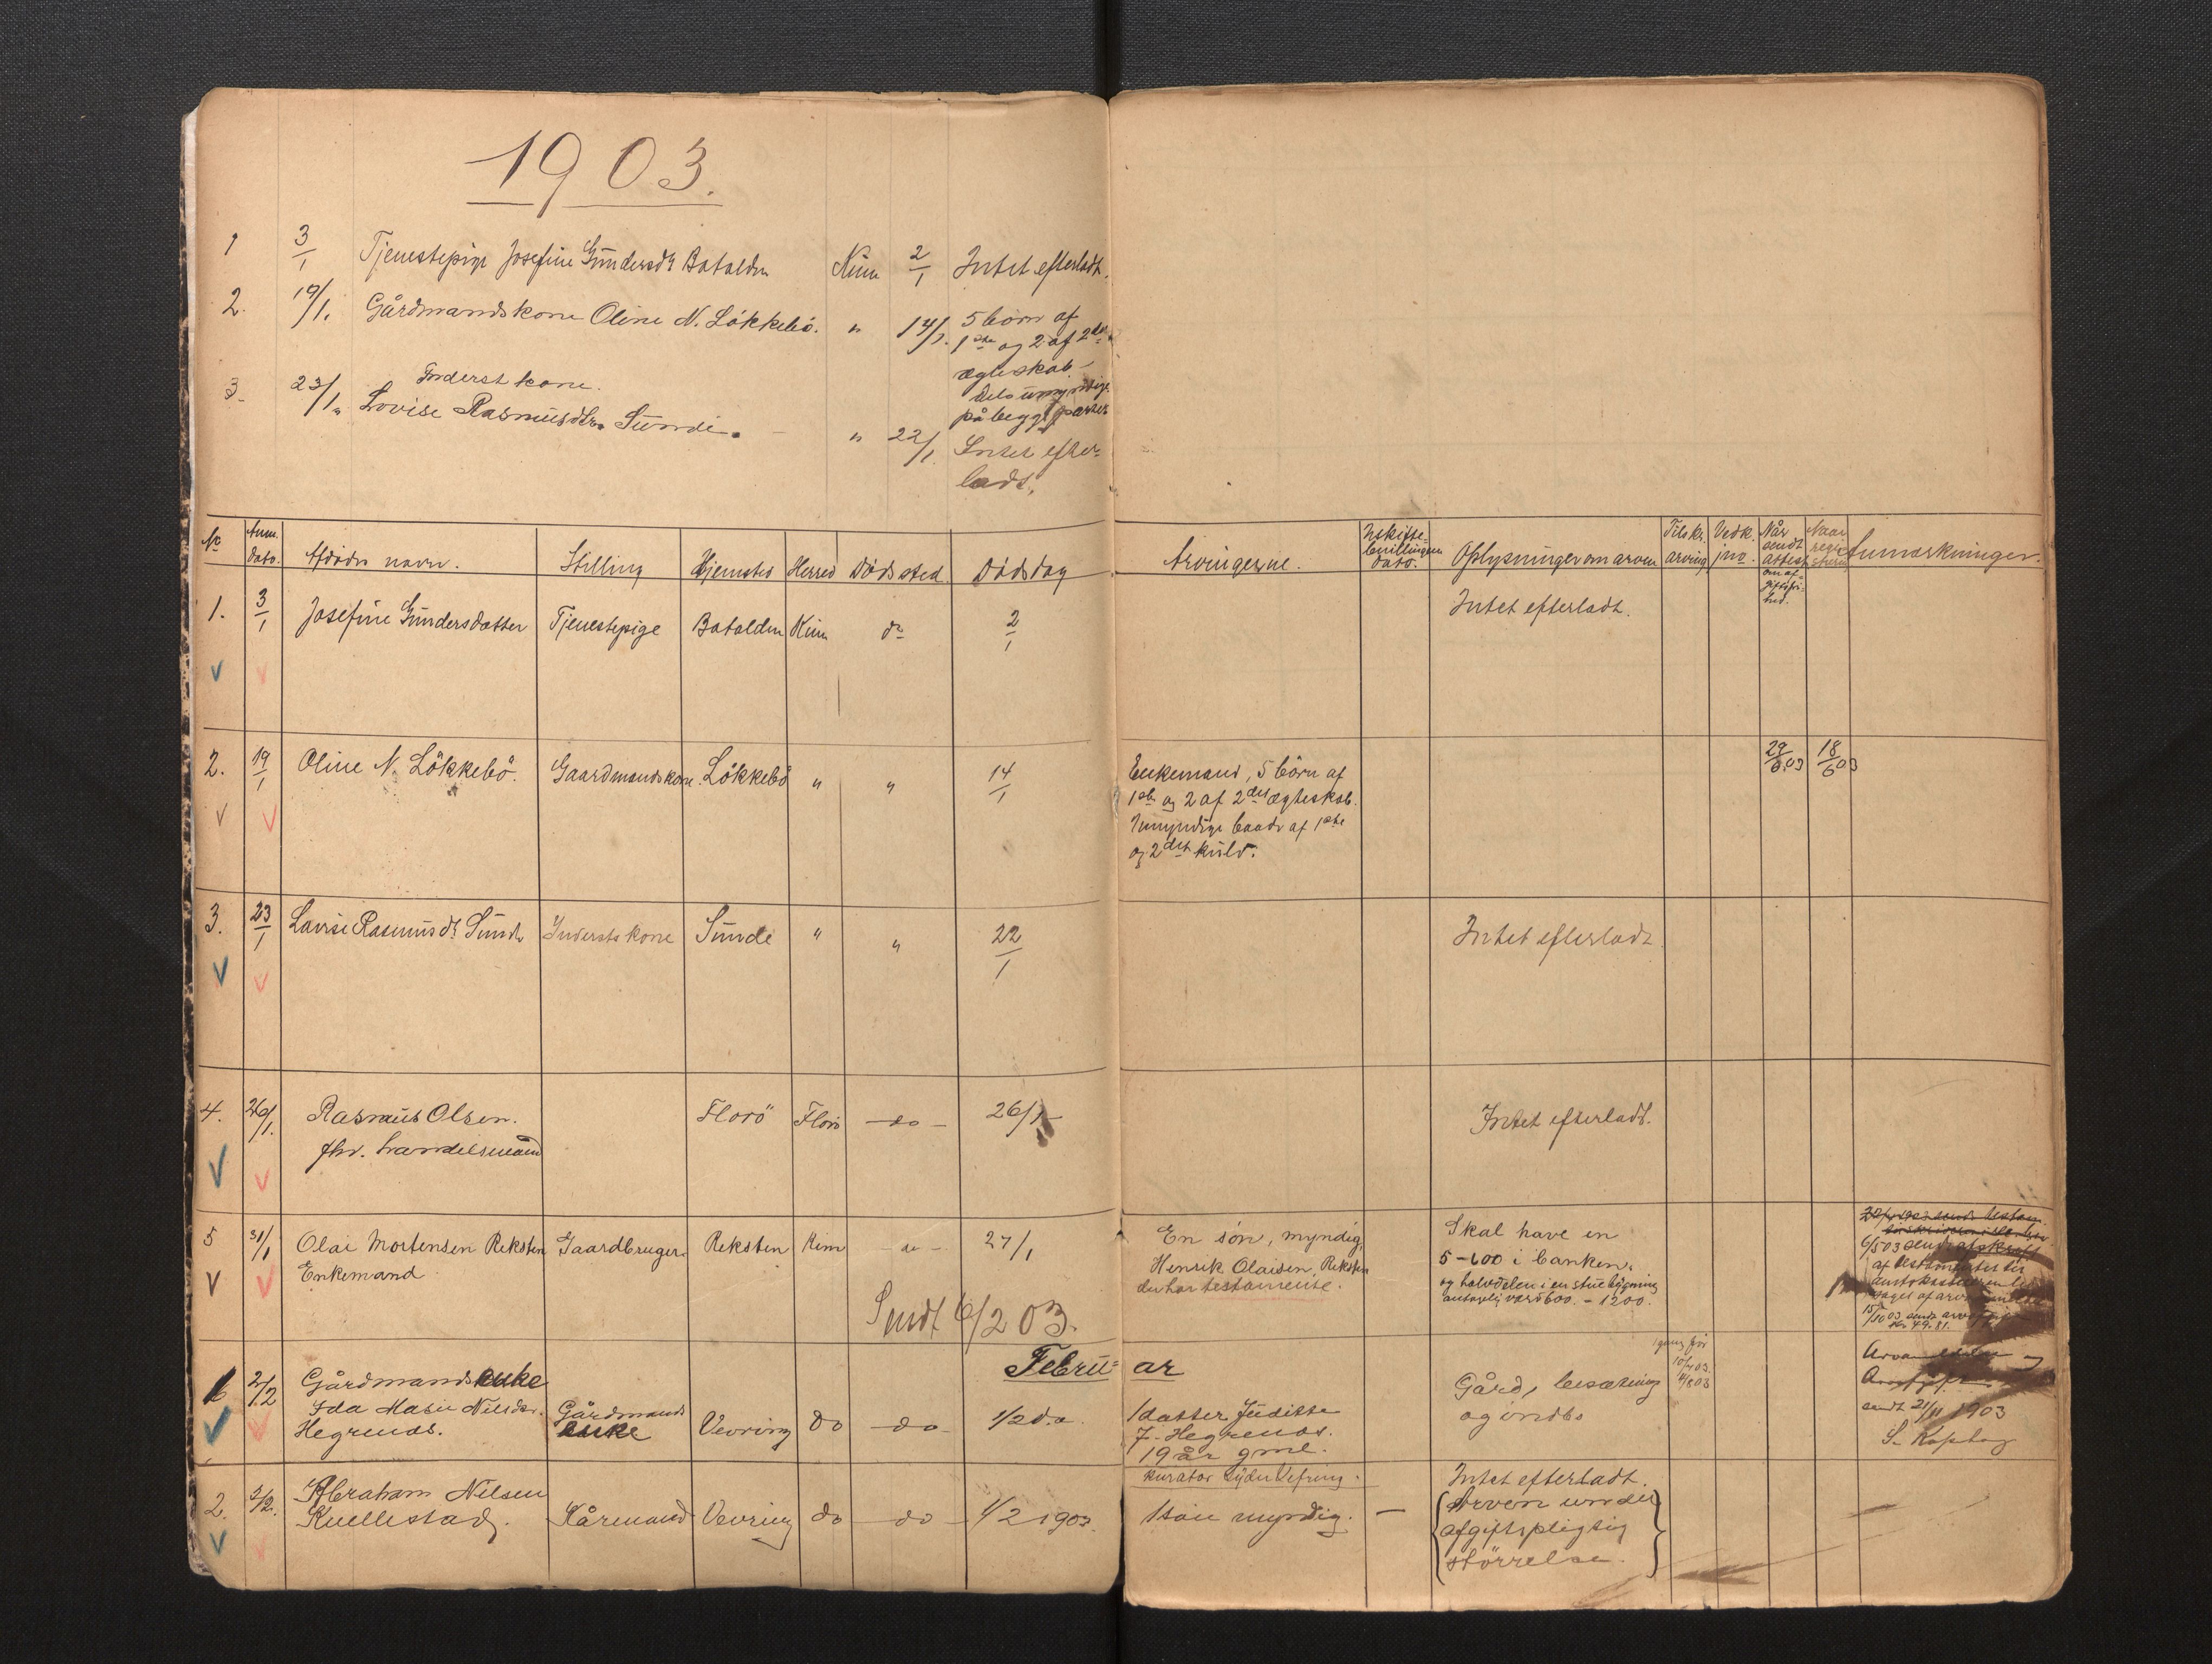 1903.
1 3/1 Tjenestepige Josefine Gundersdr Batalden Kinn 2/1 Intet efterladt.
2. 19/1. Gårdmandskone Oline N. Lökkebö. " 14/1. 5 börn af
1ste og 2 af 2det
ægteskab
dels umyndige
på begge parter
3. 23/1. Inderst kone.
Lovise Rasmusdtr. Sunde. " 22/1. Intet efter-
ladt.
No Anm. dato. Afdödes navn. Stilling Hjemsted Herred Dödssted Dödsdag
Arvingerne. Uskiftebevillingens dato. Oplysninger om arven Tilsk. arving Vedk. jno. Når sendt attest om afgiftsfrihed. Naar registreret Anmærkninger.
1. 3/1 Josefine Gundersdatter Tjenestepige Batalden Kinn do 2/1 Intet efterladt.
2. 19/1 Oline N. Lökkebö. Gaardmandskone. Lökkebö " " 14/1
Enkemand, 5 börn af
1ste og 2 af 2det ægteskab.
Umyndige baade af 1ste
og 2det kuld.
29/5.03 18/6 03
3. 23/1 Lovise Rasmusdr Sunde Inderstskone Sunde " " 22/1 Intet efterladt
4. 26/1. Rasmus Olsen.
fhv. handelsmand
Florö Florö - do - 26/1 Intet efterladt.
5 31/1 Olai Mortensen Reksten
Enkemand
Gaardbruger. Reksten Kinn - do - 27/1
En sön, myndig,
Henrik Olaisen Reksten
der har testamente.
Skal have en
5-600 i banken.
og halvdelen i en stuebygning
antagelig værd 600. - 1200.
6/5 03 sendt afskrift
af testamentet til
15/10 03 sendt
kr. 49.81.
Sendt 6/2 03.
Februar
1 2/2 Gårdmandsenke
Ida Marie Nilsdr.
Hegrenæs.
Gårdmands
enke
Vevring do - do - 1/2 d.a.
1 datter Juditte
J. Hegrenæs.
19 år gml.
kurator Lyder Vefring.
Gård, besætning
og indbo
10/7 03.
sendt 21/11 1903
2. 3/2. Abraham Nilsen
Kvellestad.
Kårmand Vevring do - do - 1/2 1903.
1 sön myndig. -
Intet efterladt.
{Arven under
afgiftspligtig
störrelse.}